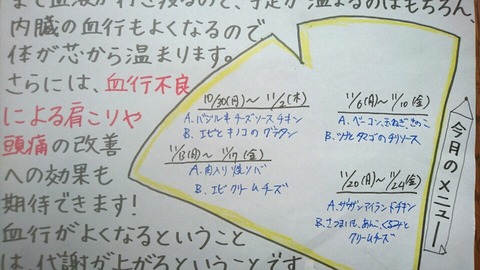 まで血液が行き渡るので、手足が温まるのはもちろん、
内臓の血行もよくなるので
体が芯から温まります。
さらには、血行不良
による肩こりや
頭痛の改善
への効果も
期待できます!
血行がよくなるということ
は、代謝が上がるということです
今月のメニュー
10/30(月)~11/2(木)
A.バジルチキーズソースチキン
B.エビとキノコのグラタン
11/6(月)~11/10(金)
A.ベーコン、おねぎ、きのこ
B.ツナとタマゴのチリソース
11/13(月)~11/17(金)
A.肉入り焼ソバ
B.エビクリームチーズ
11/20(月)~11/24(金)
A.サウザンアイランドチキン
B.さつまいも、あんこ、くるみと
クリームチーズ